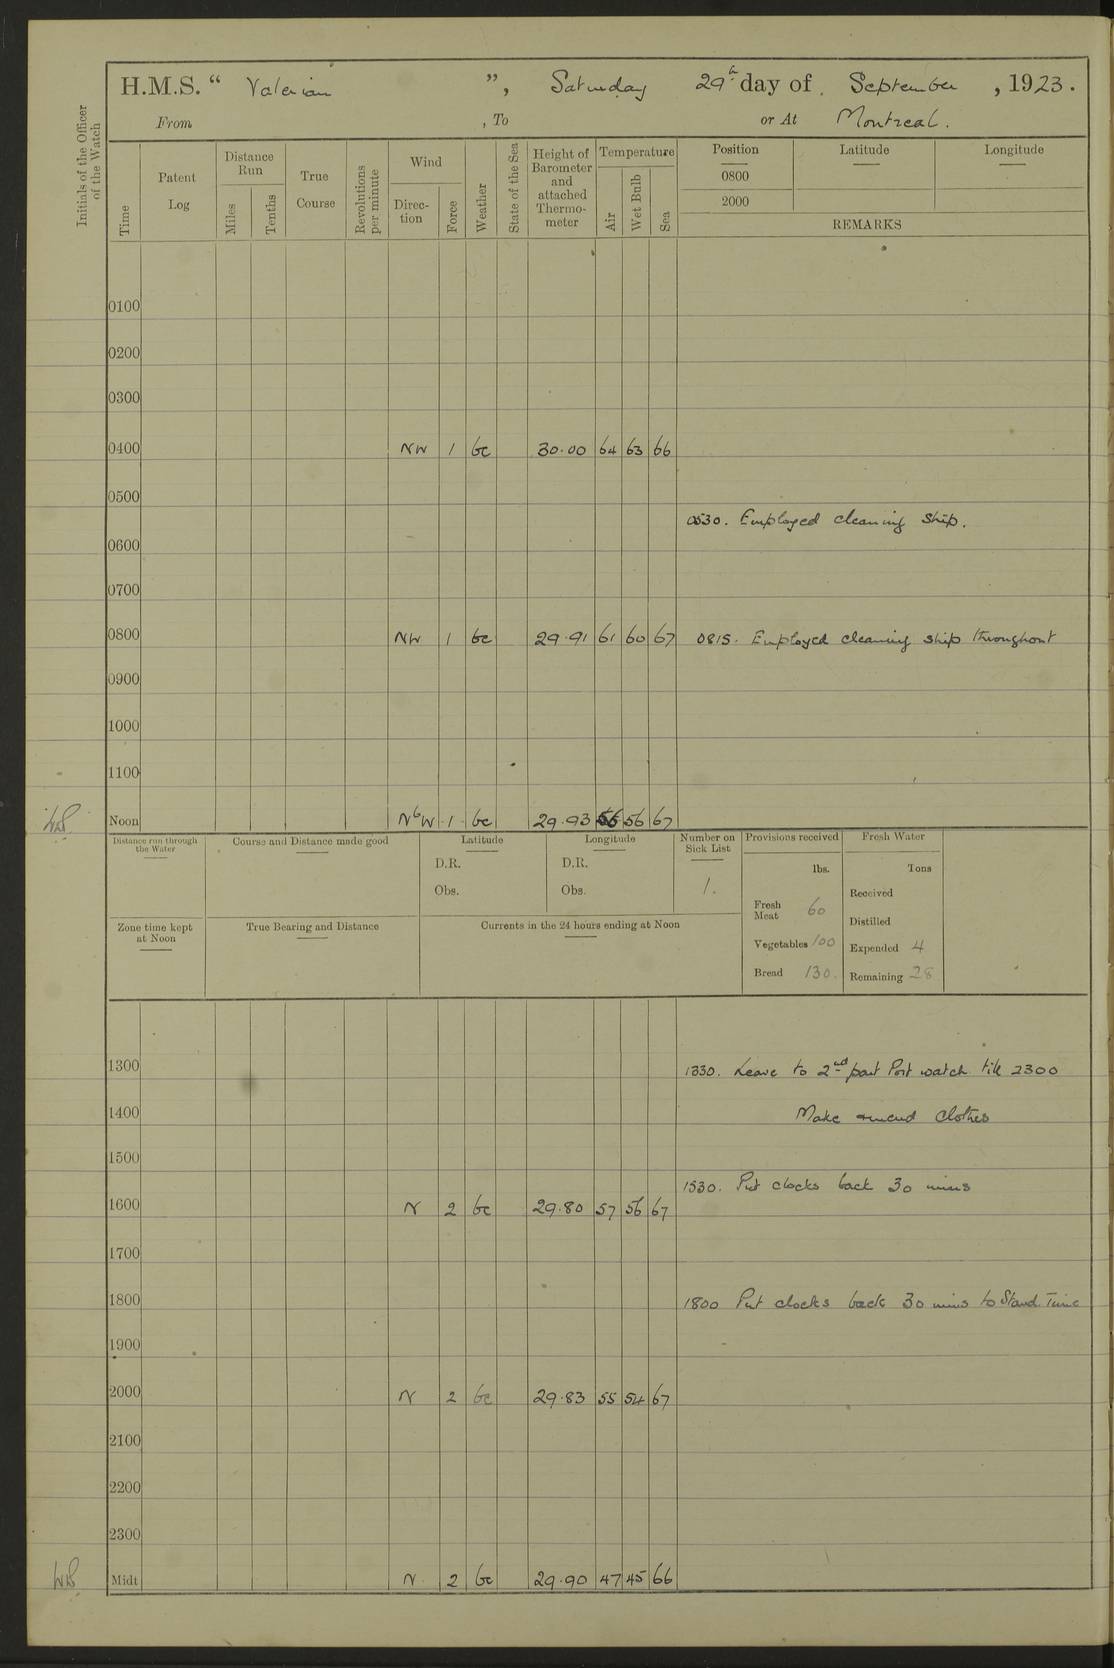 H.M.S. “ Valerian ”, Saturday 29th day of September, 1923.
From , To or At Montreal.
Initials of the Officer of the Watch
Time
Patent Log
Distance Run
Miles
Tenths
True Course
Revolutions per minute
Wind
Direc-tion
Force
Weather
State of the Sea
Height of Barometer and attached Thermo-meter
Temperature
Air
Wet Bulb
Sea
Position Latitude Longitude
0800
2000
REMARKS
0100
0200
0300
0400 NW 1 bc 30.00 64 63 66
0500
0530. Employed cleaning ship.
0600
0700
0800 NW 1 bc 29.91 61 60 67 0815. Employed cleaning ship throughout
0900
1000
1100
Noon NbW 1 bc 29.93 56 56 67
Distance run through the Water
Course and Distance made good
Latitude
D.R.
Obs.
Longitude
D.R.
Obs.
Number on Sick List
1.
Provisions received
lbs.
Fresh Meat 60
Vegetables 100
Bread 130.
Fresh Water
Tons
Received
Distilled
Expended 4
Remaining 28
Zone time kept at Noon
True Bearing and Distance
Currents in the 24 hours ending at Noon
1300 1330. Leave to 2nd part Port watch till 2300
1400 Make & mend clothes
1500
1530. Put clocks back 30 mins
1600 N 2 bc 29.80 57 56 67
1700
1800 1800 Put clocks back 30 mins to Stand. Time
1900
2000 N 2 bc 29.83 55 54 67
2100
2200
2300
Midt N 2 bc 29.90 47 45 66